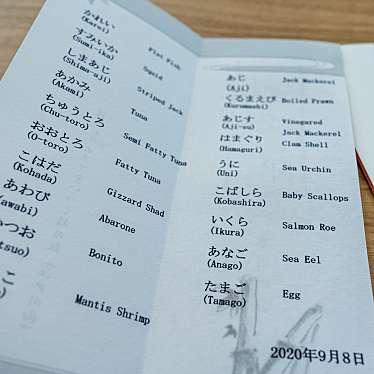 かれい
(Karei) Flat Fish
すみいか
(Sumi-ika) Squid
しまあじ
(Shima-aji) Striped Jack
あかみ
(Akami) Tuna
ちゅうとろ
(Chu-toro) Semi Fatty Tuna
おおとろ
(O-toro) Fatty Tuna
こはだ
(Kohada) Gizzard Shad
あわび
(Awabi) Abarone
つお
tsuo) Bonito
こ
Mantis Shrimp
あじ
(Aji) Jack Mackerel
くるまえび
(Kurumaebi) Boiled Prawn
あじす
(Aji-su) Vinegared
Jack Mackerel
はまぐり
(Hamaguri) Clam Shell
うに
(Uni) Sea Urchin
こばしら
(Kobashira) Baby Scallops
いくら
(Ikura) Salmon Roe
あなご
(Anago) Sea Eel
たまご
(Tamago) Egg
2020年9月8日